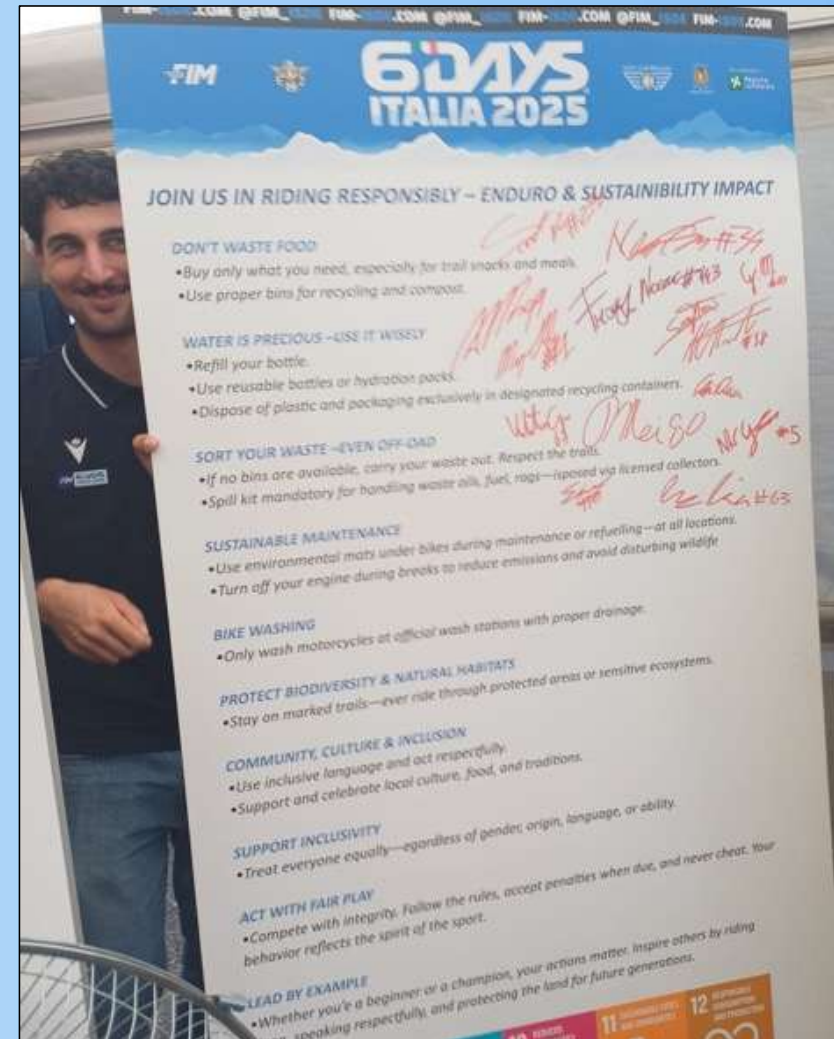 .COM @FIM_ FIM- .COM @FIM_ FIM- .COM @FIM_ FIM- .COM
FIM
6DAYS
ITALIA 2025
JOIN US IN RIDING RESPONSIBLY – ENDURO & SUSTAINIBILITY IMPACT
DON'T WASTE FOOD
•Buy only what you need, especially for trail snacks and meals.
•Use proper bins for recycling and compost.
WATER IS PRECIOUS –USE IT WISELY
•Refill your bottle.
•Use reusable bottles or hydration packs.
•Dispose of plastic and packaging exclusively in designated recycling containers.
SORT YOUR WASTE –EVEN OFF-OAD
•If no bins are available, carry your waste out. Respect the trails.
•Spill kit mandatory for handling waste oils, fuel, rags—isposed via licensed collectors.
#5
#63
SUSTAINABLE MAINTENANCE
•Use environmental mats under bikes during maintenance or refuelling—at all locations.
•Turn off your engine during breaks to reduce emissions and avoid disturbing wildlife
BIKE WASHING
•Only wash motorcycles at official wash stations with proper drainage.
PROTECT BIODIVERSITY & NATURAL HABITATS
•Stay on marked trails—ever ride through protected areas or sensitive ecosystems.
COMMUNITY, CULTURE & INCLUSION
•Use inclusive language and act respectfully.
•Support and celebrate local culture, food, and traditions.
SUPPORT INCLUSIVITY
•Treat everyone equally—egardless of gender, origin, language, or ability.
ACT WITH FAIR PLAY
•Compete with integrity. Follow the rules, accept penalties when due, and never cheat. Your
behavior reflects the spirit of the sport.
LEAD BY EXAMPLE
•Whether you'e a beginner or a champion, your actions matter. Inspire others by riding
speaking respectfully, and protecting the land for future generations.
11
12